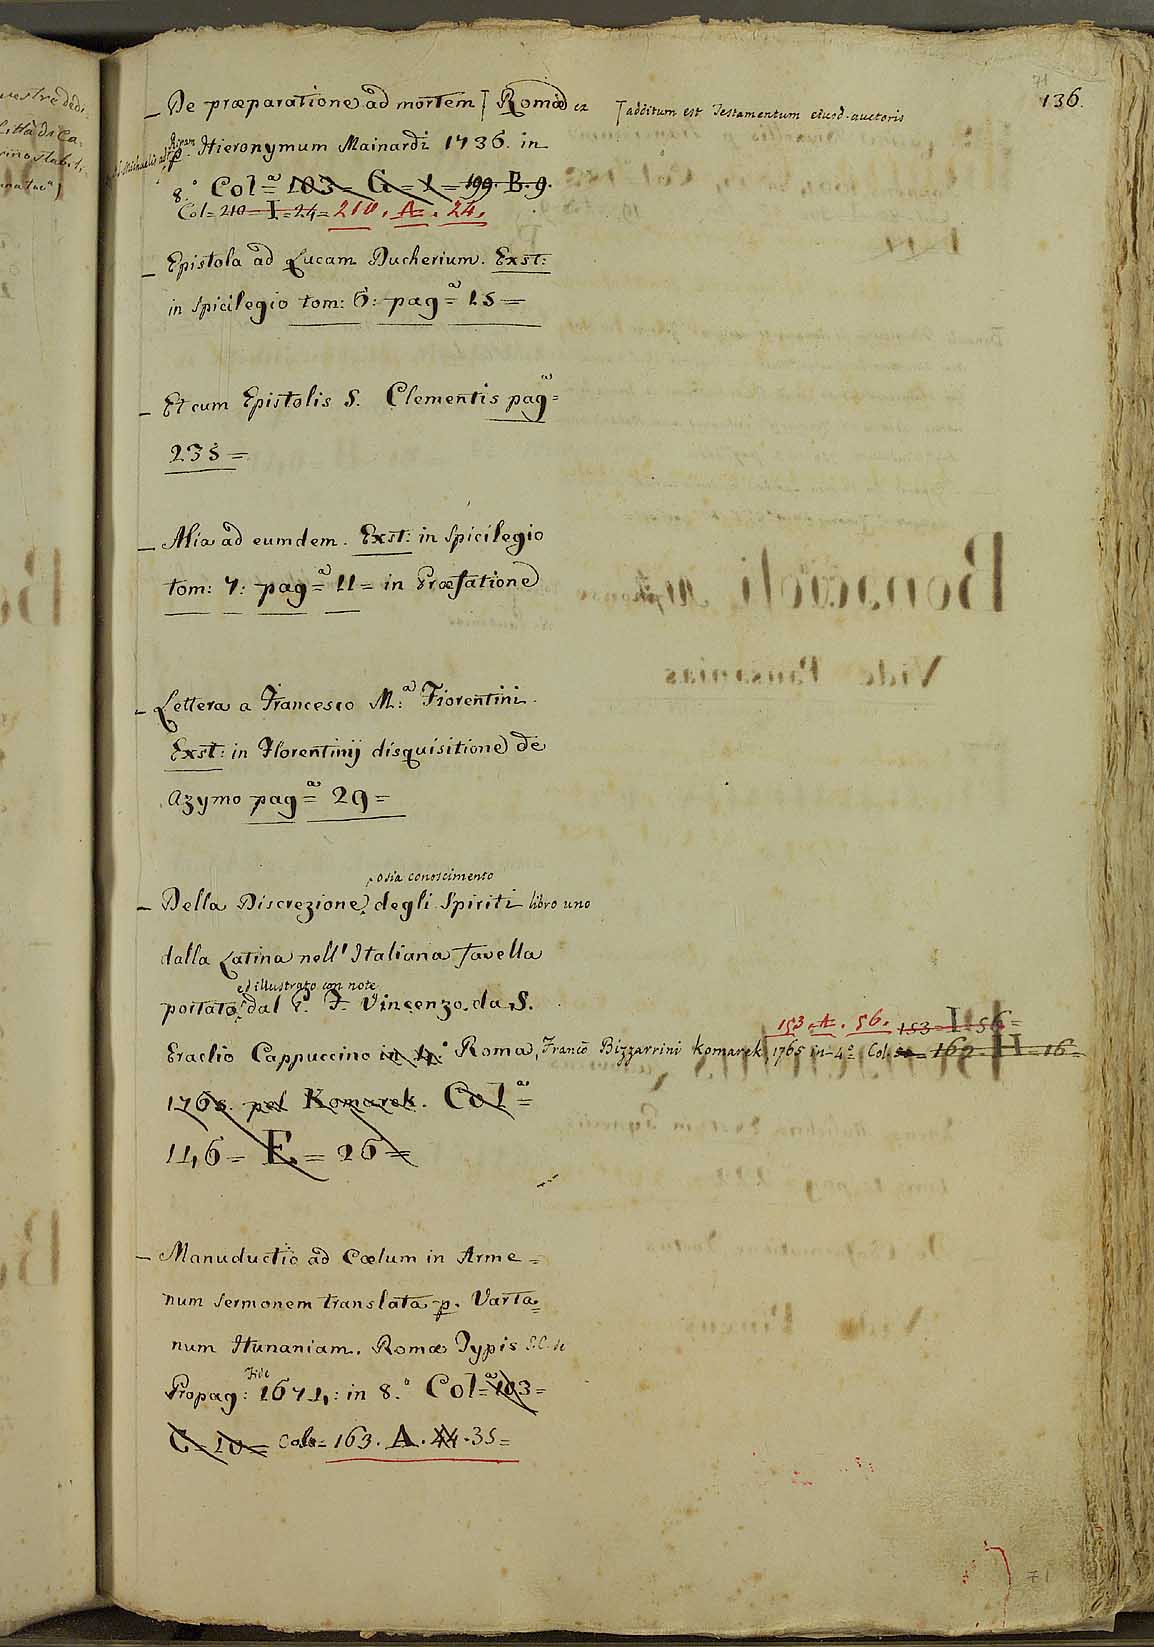 71
136.
_ De præparatione ad mortem [ Romæ ex [additum est Testamentum ejusd. auctoris
p. Hieronymum Mainardi 1736. in
8.° Col=ª 103 = G = 1 = 199. B. 9.
Col= 210 = I = 24 = 210. A. 24.
_ Epistola ad Lucam Ducherium. Exst:
in Spicilegio tom: 6: pag=ª 15 =
_ Et cum Epistolis S. Clementis pag=ª
235 =
_ Alia ad eumdem. Exst: in Spicilegio
tom: 7: pag=ª 11 = in Præfatione
_ Lettera a Francesco M:ª Fiorentini.
Exst: in Florentinij disquisitione de
Azymo pag=ª 29 =
osia conoscimento
_ Della Discrezione, degli Spiriti libro uno
dalla Latina nell' Italiana favella
ed illustrato con note
portato, dal P. F. Vincenzo da S.
153. A. 56. 153 = I = 56 =
Eraclio Cappuccino in 4.° Roma, Franco Bizzarrini Komarek, 1765 in 4° Col. 162 = H = 16 =
1765. pel Komarek. Col=ª
116 = E = 26 =
_ Manuductio ad Cœlum in Arme =
num sermonem translata p. Varta=
num Hunaniam. Romæ Typis S.C. de
Fide
Propag: 1671,: in 8.° Col=ª 103 =
C = 10 = Col= 163. A. 44. 35 =
71
Bonacioli Alphonso
Vide Pausanias